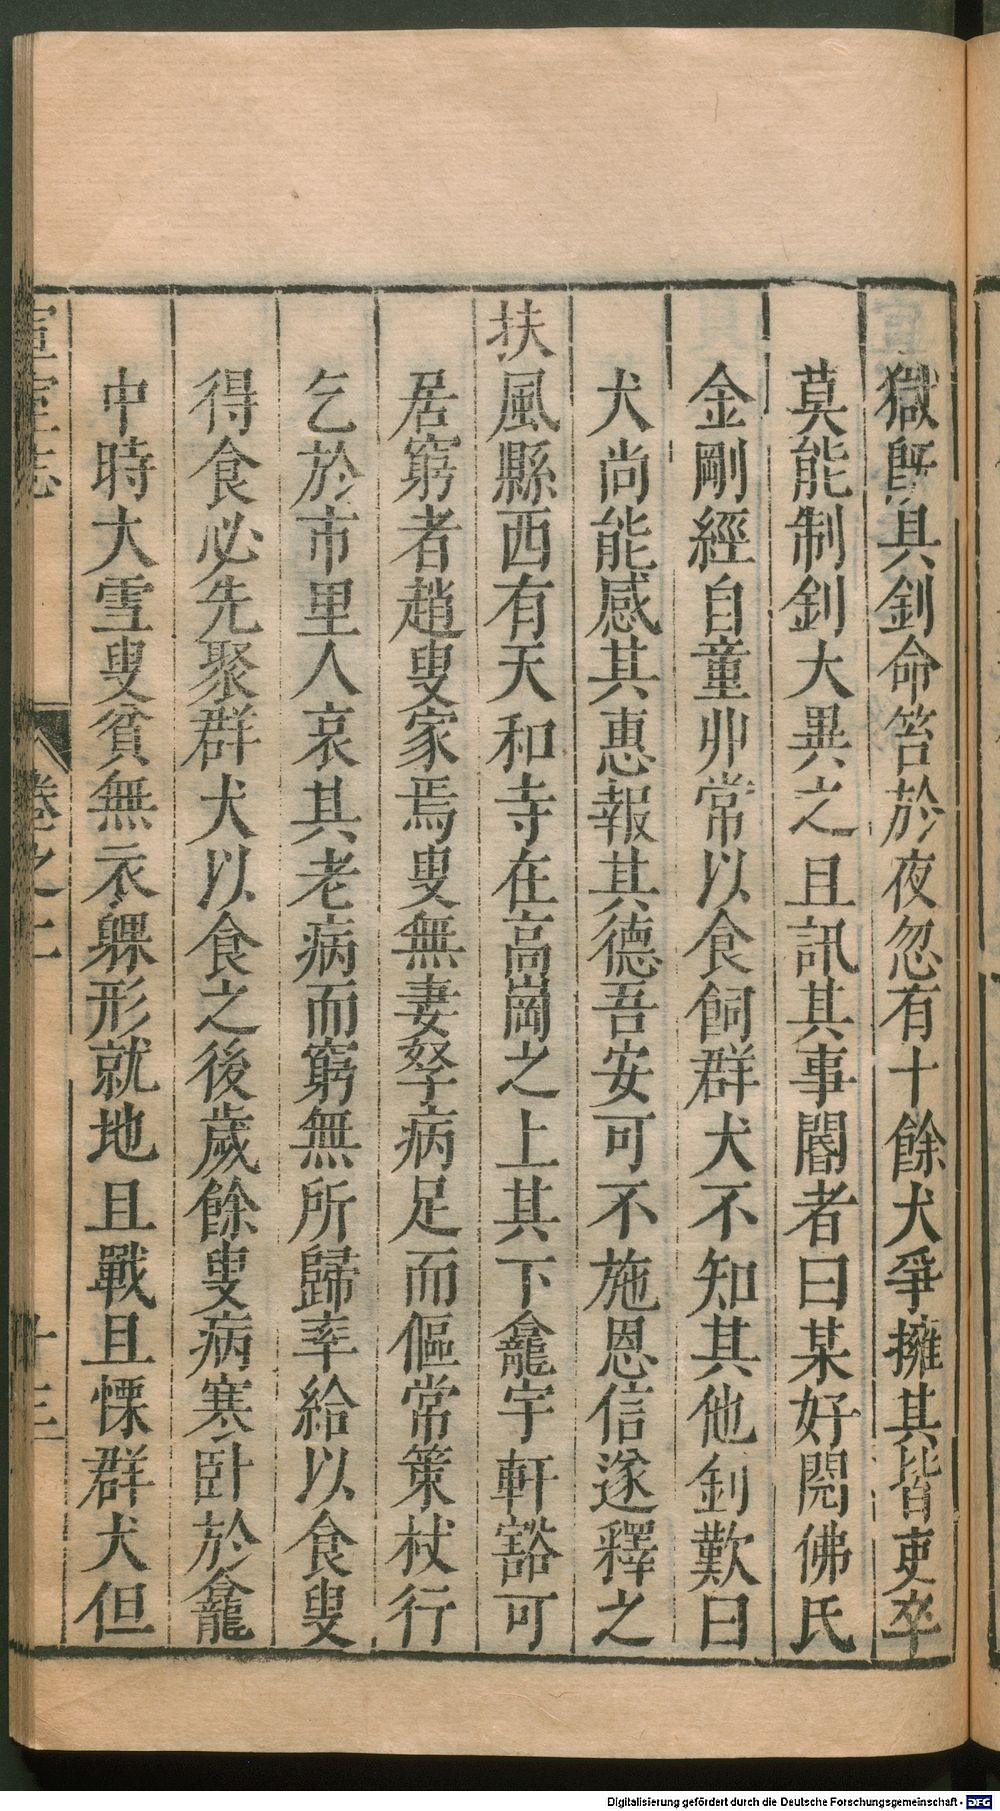 獄既具釗命笞於夜忽有十餘犬爭擁其背吏卒
莫能制釗大異之且訊其事閽者曰某好閱佛氏
金剛經自童丱常以食飼群犬不知其他釗歎曰
犬尚能感其惠報其德吾安可不施恩信遂釋之
扶風縣西有天和寺在高崗之上其下龕宇軒豁可
居窮者趙叟家焉叟無妻孥病足而傴常策杖行
乞於市里人哀其老病而窮無所歸率給以食叟
得食必先聚群犬以食之後歲餘叟病寒臥於龕
中時大雪叟貧無衣躶形就地且戰且慄群犬但
宣室志
卷之二
十三
Digitalisierung gefördert durch die Deutsche Forschungsgemeinschaft - DFG